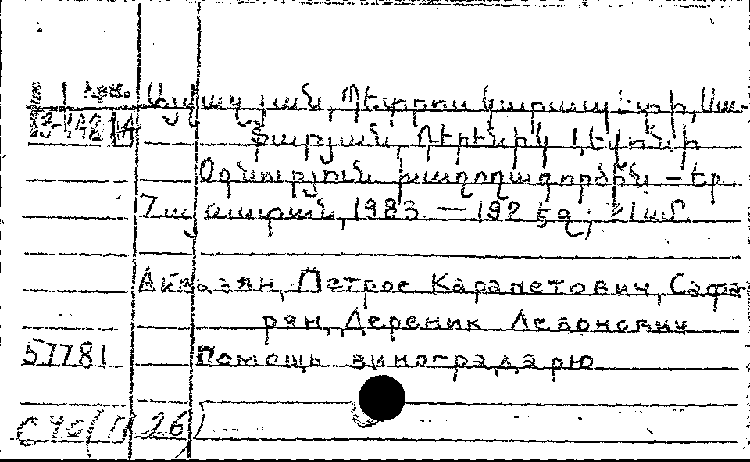 Այվազյան, Պետրոս Կարապետի, Սա-
ֆարյան, Դերենիկ Լևոնի
Օգնություն խաղողագործին. – Եր.
Հայաստան, 1983 — 192 էջ; 21 սմ.
Айвазян, Петрос Карапетович, Сафа-
рян, Дереник Левонович
57781 Помощь виноградарю